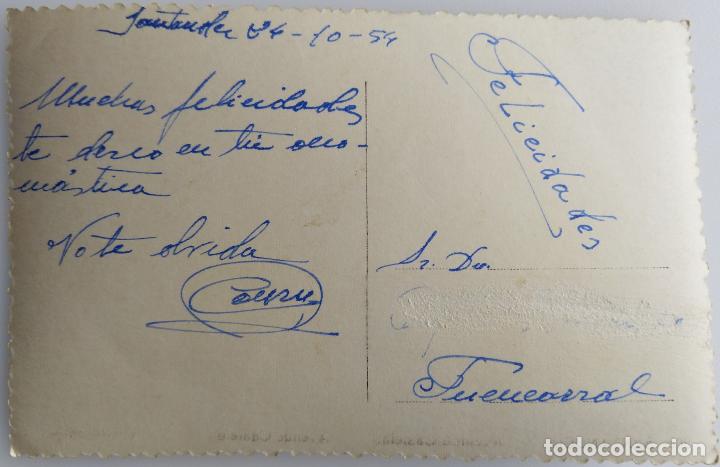 Santander 24-10-54
Muchas felicidades
te deseo en tu ono-
mástica
No te olvida
Felicidades
Sr. Dn.
Fuencarral
todocoleccion